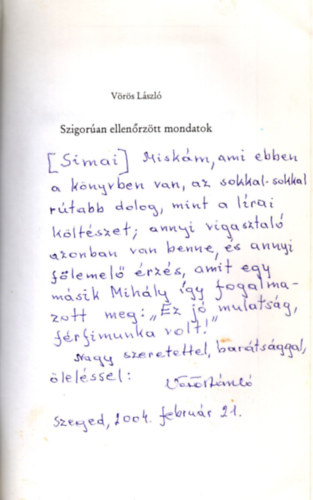 Vörös László
Szigorúan ellenőrzött mondatok
[Simai] Miskám, ami ebben
a könyvben van, az sokkal-sokkal
rútabb dolog, mint a lírai
költészet; annyi vigasztaló
azonban van benne, és annyi
fölemelő érzés, amit egy
másik Mihály így fogalma-
zott meg: „Ez jó mulatság,
férfimunka volt!"
Nagy szeretettel, barátsággal,
öleléssel: Vörös László
Szeged, 2004. február 21.